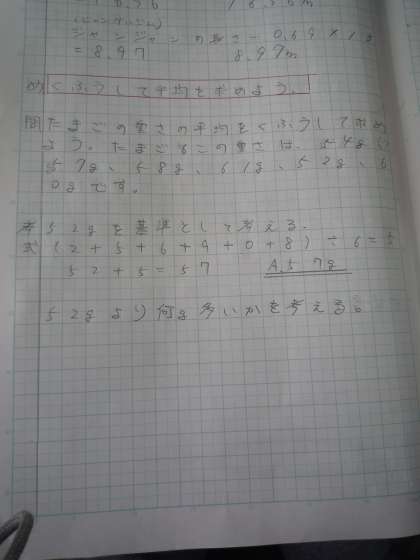 ジャンジャンの長さ=0.69×13
=8.97 8.97m
め くふうして平均を求めよう。
問 たまごの重さの平均をくふうして求め
よう。たまご6この重さは、54g、
57g、58g、61g、52g、6
0gです。
考 52gを基準として考える。
式(2+5+6+9+0+8)÷6=5
52+5=57 A.57g
52gより何g多いかを考える。